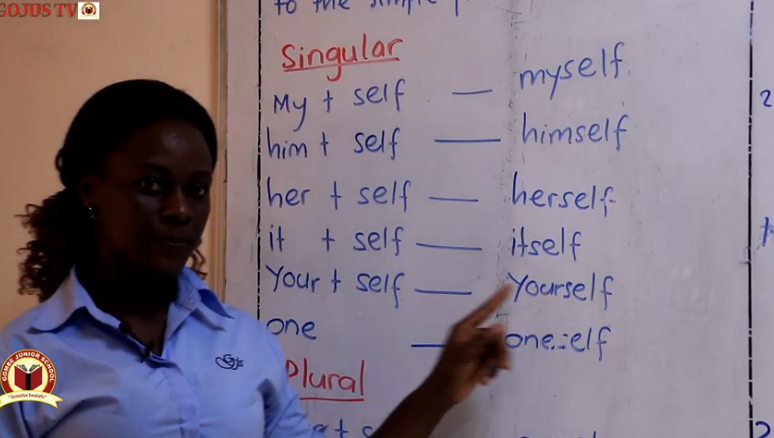 GOJUS TV
to the simple
Singular
My + self — myself
him + self — himself
her + self — herself
it + self — itself
Your + self — Yourself
one — one::elf
Plural
GOMBE JUNIOR SCHOOL